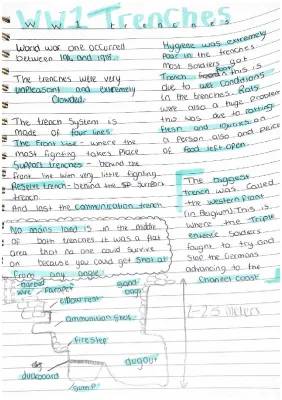 WW1 Trenches
World war one occurred
between 1914 and 1918.
The trenches were very
unpleasant and extremely
Crowded.
The trench System is
made of four lines
The Front line - where the
most fighting takes Place
Support trenches - behind the
front line with very little fighting
Reserve trench - behind the support
trench
And last the communication trench
No mans land is in the middle
of both trenches it was a flat
area that no one could survive
on because you could get shot at
from any angle.
Hygiene was extremely
Poor in the trenches
most Soldiers got
Trench foot this is
due to wet Conditions
in the trenches. Rats
were also a huge problem
this was due to rotting
flesh and injuries on
a Person also and
of food left open
The biggest
trench was called
the western Front
(in Belgium) this is
where the Triple
entente Soldiers
fought to try and
Stop the Germans
advancing to the
Channel Coast
barbed
wire
Parapet
Sand
bags
elbow rest
ammunition shelf
2-2.5 meters
firestep
dugout
duckboard
sump